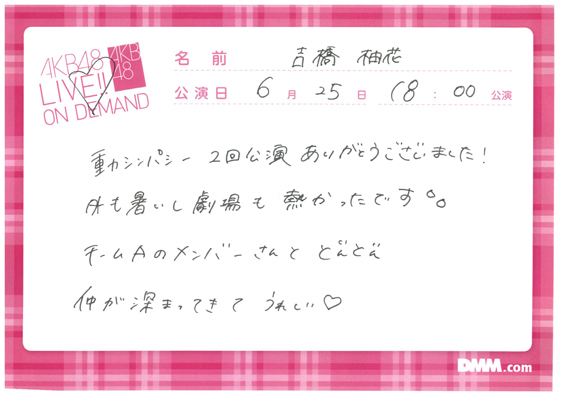 AKB48
LIVE!!
ON DEMAND
AKB
48
名前 吉橋 柚花
公演日 6月25日 18:00 公演
重力シンパシー 2回公演 ありがとうございました!
外も暑いし劇場も 熱かったです。。
チームAのメンバーさんと どんどん
仲が深まってきて うれしい♡
DMM.com